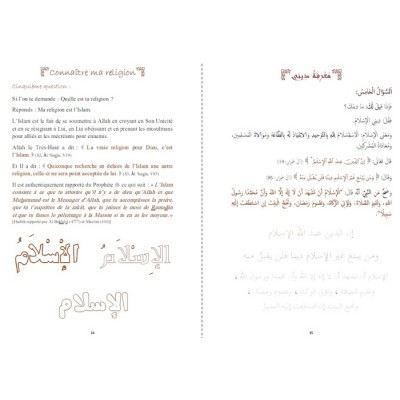 Connaître ma religion
Cinquième question :
Si l'on te demande : Quelle est ta religion ?
Réponds : Ma religion est l'Islam.
L'Islam est le fait de se soumettre à Allah en croyant en Son Unicité
et en se résignant à Lui, en Lui obéissant et en prenant les musulmans
pour alliés et les mécréants pour ennemis.
Allah le Très-Haut a dit : « La vraie religion pour Dieu, c'est
l'Islam »
Et Il a dit : « Quiconque recherche en dehors de l'Islam une autre
religion, celle-ci ne sera point acceptée de lui. »
Il est authentiquement rapporté du Prophète que : « L'Islam
consiste à ce que tu attestes qu'il n'y a de dieu qu'Allah et que
Muhammad est le Messager d'Allah, que tu accomplisses la prière,
que tu t'acquittes de la zakat, que tu jeûnes le mois de Ramadan
et que tu fasses le pèlerinage à la Maison si tu en as les moyens »
الإسلام
الإسلام
الإسلام
44
معرفة ديني
السُّؤَالُ الْخَامِسُ:
فَإِذَا قِيلَ لَكَ: مَا دِينُكَ؟
فَقُلْ: دِينِي الْإِسْلَامُ.
وَمَعْنَى الْإِسْلَامِ: الِاسْتِسْلَامُ لِلَّهِ بِالتَّوْحِيدِ وَالِانْقِيَادُ لَهُ بِالطَّاعَةِ وَمُوَالَاةُ الْمُسْلِمِينَ،
وَمُعَادَاةُ الْمُشْرِكِينَ.
قَالَ تَعَالَى: ﴿إِنَّ الدِّينَ عِنْدَ اللَّهِ الْإِسْلَامُ﴾
قَالَ تَعَالَى: ﴿وَمَنْ يَبْتَغِ غَيْرَ الْإِسْلَامِ دِينًا فَلَنْ يُقْبَلَ مِنْهُ﴾
وَصَحَّ عَنِ النَّبِيِّ أَنَّهُ قَالَ: الْإِسْلَامُ أَنْ تَشْهَدَ أَنْ لَا إِلَهَ إِلَّا اللَّهُ وَأَنَّ مُحَمَّدًا رَسُولُ
اللَّهِ، وَتُقِيمَ الصَّلَاةَ، وَتُؤْتِيَ الزَّكَاةَ، وَتَصُومَ رَمَضَانَ، وَتَحُجَّ الْبَيْتَ إِنِ اسْتَطَعْتَ إِلَيْهِ
سَبِيلًا
إن الدين عند الله الإسلام
ومن يبتغ غير الإسلام دينا فلن يقبل منه
45